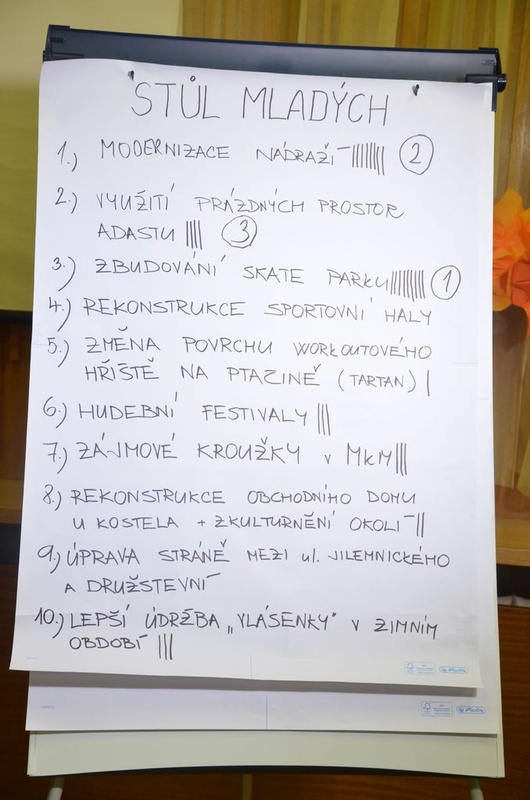 STŮL MLADÝCH
1.) MODERNIZACE NÁDRAŽÍ |||||||| 2
2.) VYUŽITÍ PRÁZDNÝCH PROSTOR
ADASTU |||| 3
3.) ZBUDOVÁNÍ SKATE PARKU ||||||||| 1
4.) REKONSTRUKCE SPORTOVNÍ HALY
5.) ZMĚNA POVRCHU WORKOUTOVÉHO
HŘIŠTĚ NA PTAČINĚ (TARTAN) |
6.) HUDEBNÍ FESTIVALY |||
7.) ZÁJMOVÉ KROUŽKY v MKM |||
8.) REKONSTRUKCE OBCHODNÍHO DOMU
U KOSTELA + ZKULTURNĚNÍ OKOLÍ ||
9.) ÚPRAVA STRÁNĚ MEZI ul. JILEMNICKÉHO
A DRUŽSTEVNÍ
10.) LEPŠÍ ÚDRŽBA „VLÁSENKY" V ZIMNÍM
OBDOBÍ |||